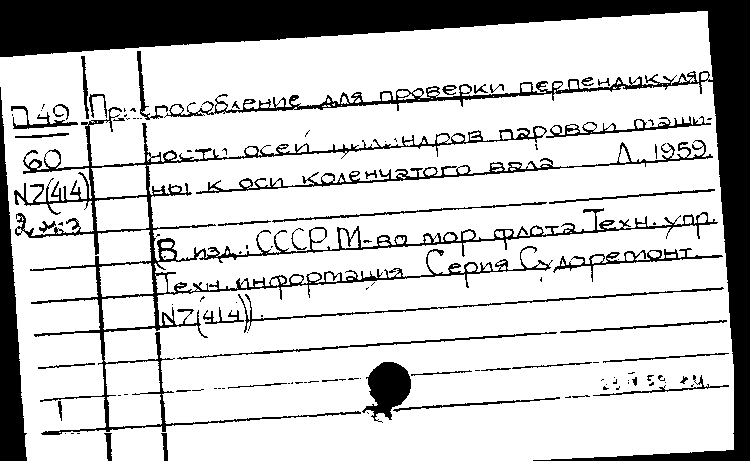 П49 Приспособление для проверки перпендикуляр
60 ности осей цилиндров паровой маши-
N7(414) ны к оси коленчатого вала Л., 1959.
2 экз
(В изд.: СССР. М-во мор. флота. Техн. упр.
Техн. информация Серия Судоремонт.
N7(414)).
1